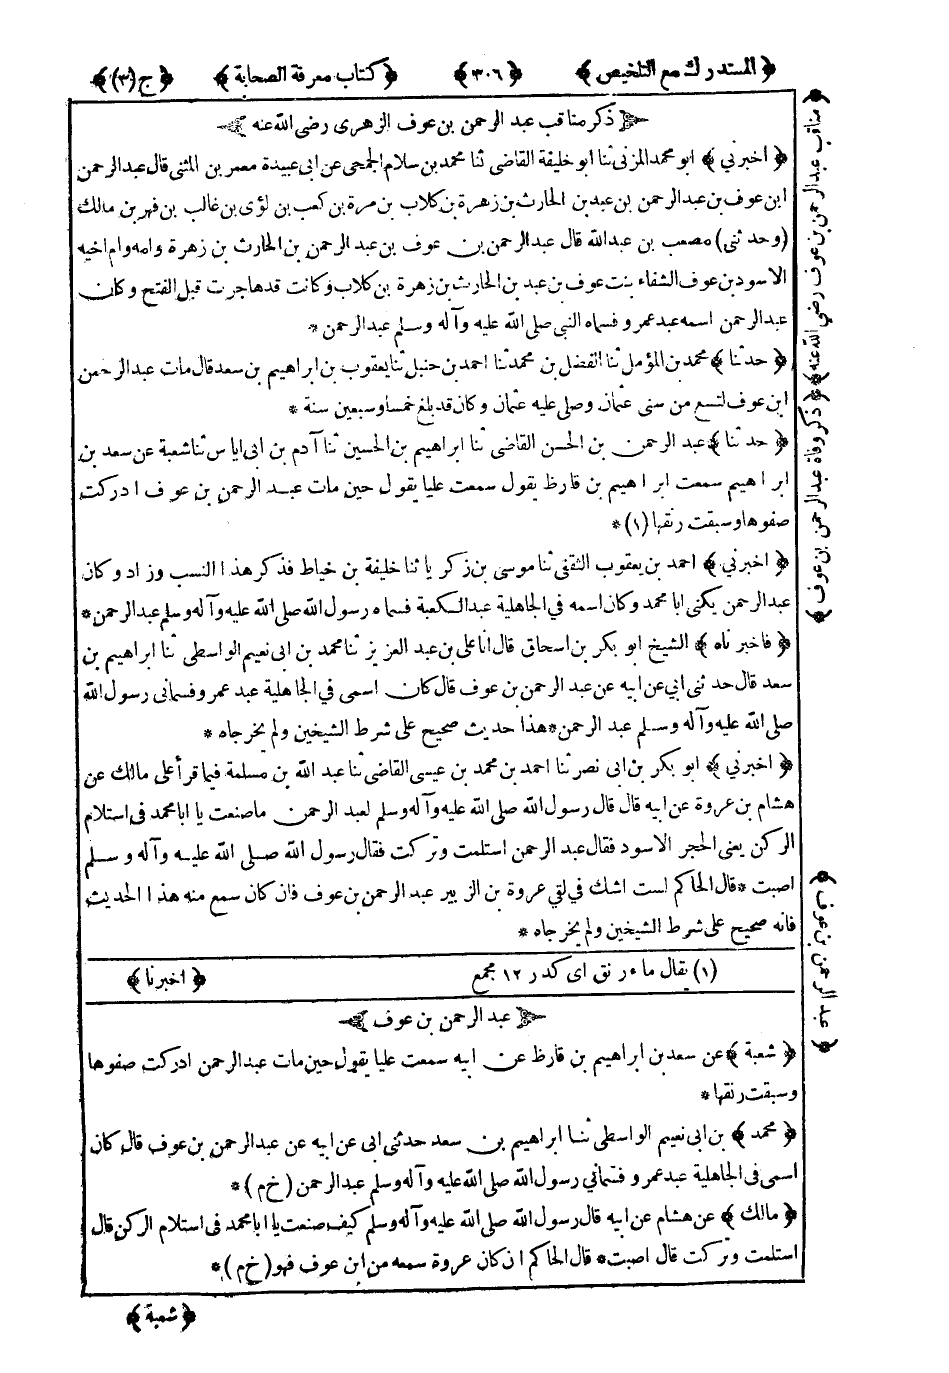 ﴿ المستدرك مع التلخيص ﴾ ﴿ ٣٠٦ ﴾ ﴿ كتاب معرفة الصحابة ﴾ ﴿ ج (٣) ﴾
ذكر مناقب عبد الرحمن بن عوف الزهرى رضى الله عنه
﴿ اخبرني ﴾ ابو محمد المزنى ثنا ابو خليفة القاضى ثنا محمد بن سلام الجمحى عن ابى عبيدة معمر بن المثنى قال عبد الرحمن
ابن عوف بن عبد الرحمن بن عبد بن الحارث بن زهرة بن كلاب بن مرة بن كعب بن لؤى بن غالب بن فهر بن مالك
(وحدثنى) مصعب بن عبد الله قال عبد الرحمن بن عوف بن عبد الرحمن بن الحارث بن زهرة وامه وام اخيه
الاسود بن عوف الشفاء بنت عوف بن عبد بن الحارث بن زهرة بن كلاب وكانت قد هاجرت قبل الفتح وكان
عبد الرحمن اسمه عبد عمرو فسماه النبى صلى الله عليه وآله وسلم عبد الرحمن *
﴿ حدثنا ﴾ محمد بن المؤمل ثنا الفضل بن محمد ثنا احمد بن حنبل ثنا يعقوب بن ابراهيم بن سعد قال مات عبد الرحمن
ابن عوف لتسع من سنى عثمان وصلى عليه عثمان وكان قد بلغ خمسا وسبعين سنة *
﴿ حدثنا ﴾ عبد الرحمن بن الحسن القاضى ثنا ابراهيم بن الحسين ثنا آدم بن ابى اياس ثنا شعبة عن سعد بن
ابراهيم سمعت ابراهيم بن قارظ يقول سمعت عليا يقول حين مات عبد الرحمن بن عوف ادركت
صفوها وسبقت رنقها (١) *
﴿ اخبرني ﴾ احمد بن يعقوب الثقفى ثنا موسى بن زكريا ثنا خليفة بن خياط فذكر هذا النسب وزاد وكان
عبد الرحمن يكنى ابا محمد وكان اسمه فى الجاهلية عبد الكعبة فسماه رسول الله صلى الله عليه وآله وسلم عبد الرحمن *
﴿ فاخبرناه ﴾ الشيخ ابو بكر بن اسحاق قال انا على بن عبد العزيز ثنا محمد بن ابى نعيم الواسطى ثنا ابراهيم بن
سعد قال حدثنى ابي عن ابيه عن عبد الرحمن بن عوف قال كان اسمى في الجاهلية عبد عمرو فسمانى رسول الله
صلى الله عليه وآله وسلم عبد الرحمن * هذا حديث صحيح على شرط الشيخين ولم يخرجاه *
﴿ اخبرني ﴾ ابو بكر بن ابى نصر ثنا احمد بن محمد بن عيسى القاضى ثنا عبد الله بن مسلمة فيما قرأ على مالك عن
هشام بن عروة عن ابيه قال قال رسول الله صلى الله عليه وآله وسلم لعبد الرحمن ماصنعت يا ابا محمد فى استلام
الركن يعنى الحجر الاسود فقال عبد الرحمن استلمت وتركت فقال رسول الله صلى الله عليه وآله وسلم
اصبت * قال الحاكم لست اشك في لقي عروة بن الزبير عبد الرحمن بن عوف فان كان سمع منه هذا الحديث
فانه صحيح على شرط الشيخين ولم يخرجاه *
(١) يقال ماء رنق اى كدر ١٢ مجمع
﴿ اخبرنا ﴾
عبد الرحمن بن عوف
﴿ شعبة ﴾ عن سعد بن ابراهيم بن قارظ عن ابيه سمعت عليا يقول حين مات عبد الرحمن ادركت صفوها
وسبقت رنقها *
﴿ محمد ﴾ بن ابى نعيم الواسطى ثنا ابراهيم بن سعد حدثنى ابى عن ابيه عن عبد الرحمن بن عوف قال كان
اسمى فى الجاهلية عبد عمرو فسماني رسول الله صلى الله عليه وآله وسلم عبد الرحمن (خ م) *
﴿ مالك ﴾ عن هشام عن ابيه قال رسول الله صلى الله عليه وآله وسلم كيف صنعت يا ابا محمد فى استلام الركن قال
استلمت وتركت قال اصبت * قال الحاكم ان كان عروة سمعه من ابن عوف فهو (خ م) *
﴿ شعبة ﴾
﴿ مناقب عبد الرحمن بن عوف رضي الله عنه ﴾ ﴿ ذكر وفاة عبد الرحمن بن عوف ﴾
﴿ عبد الرحمن بن عوف ﴾